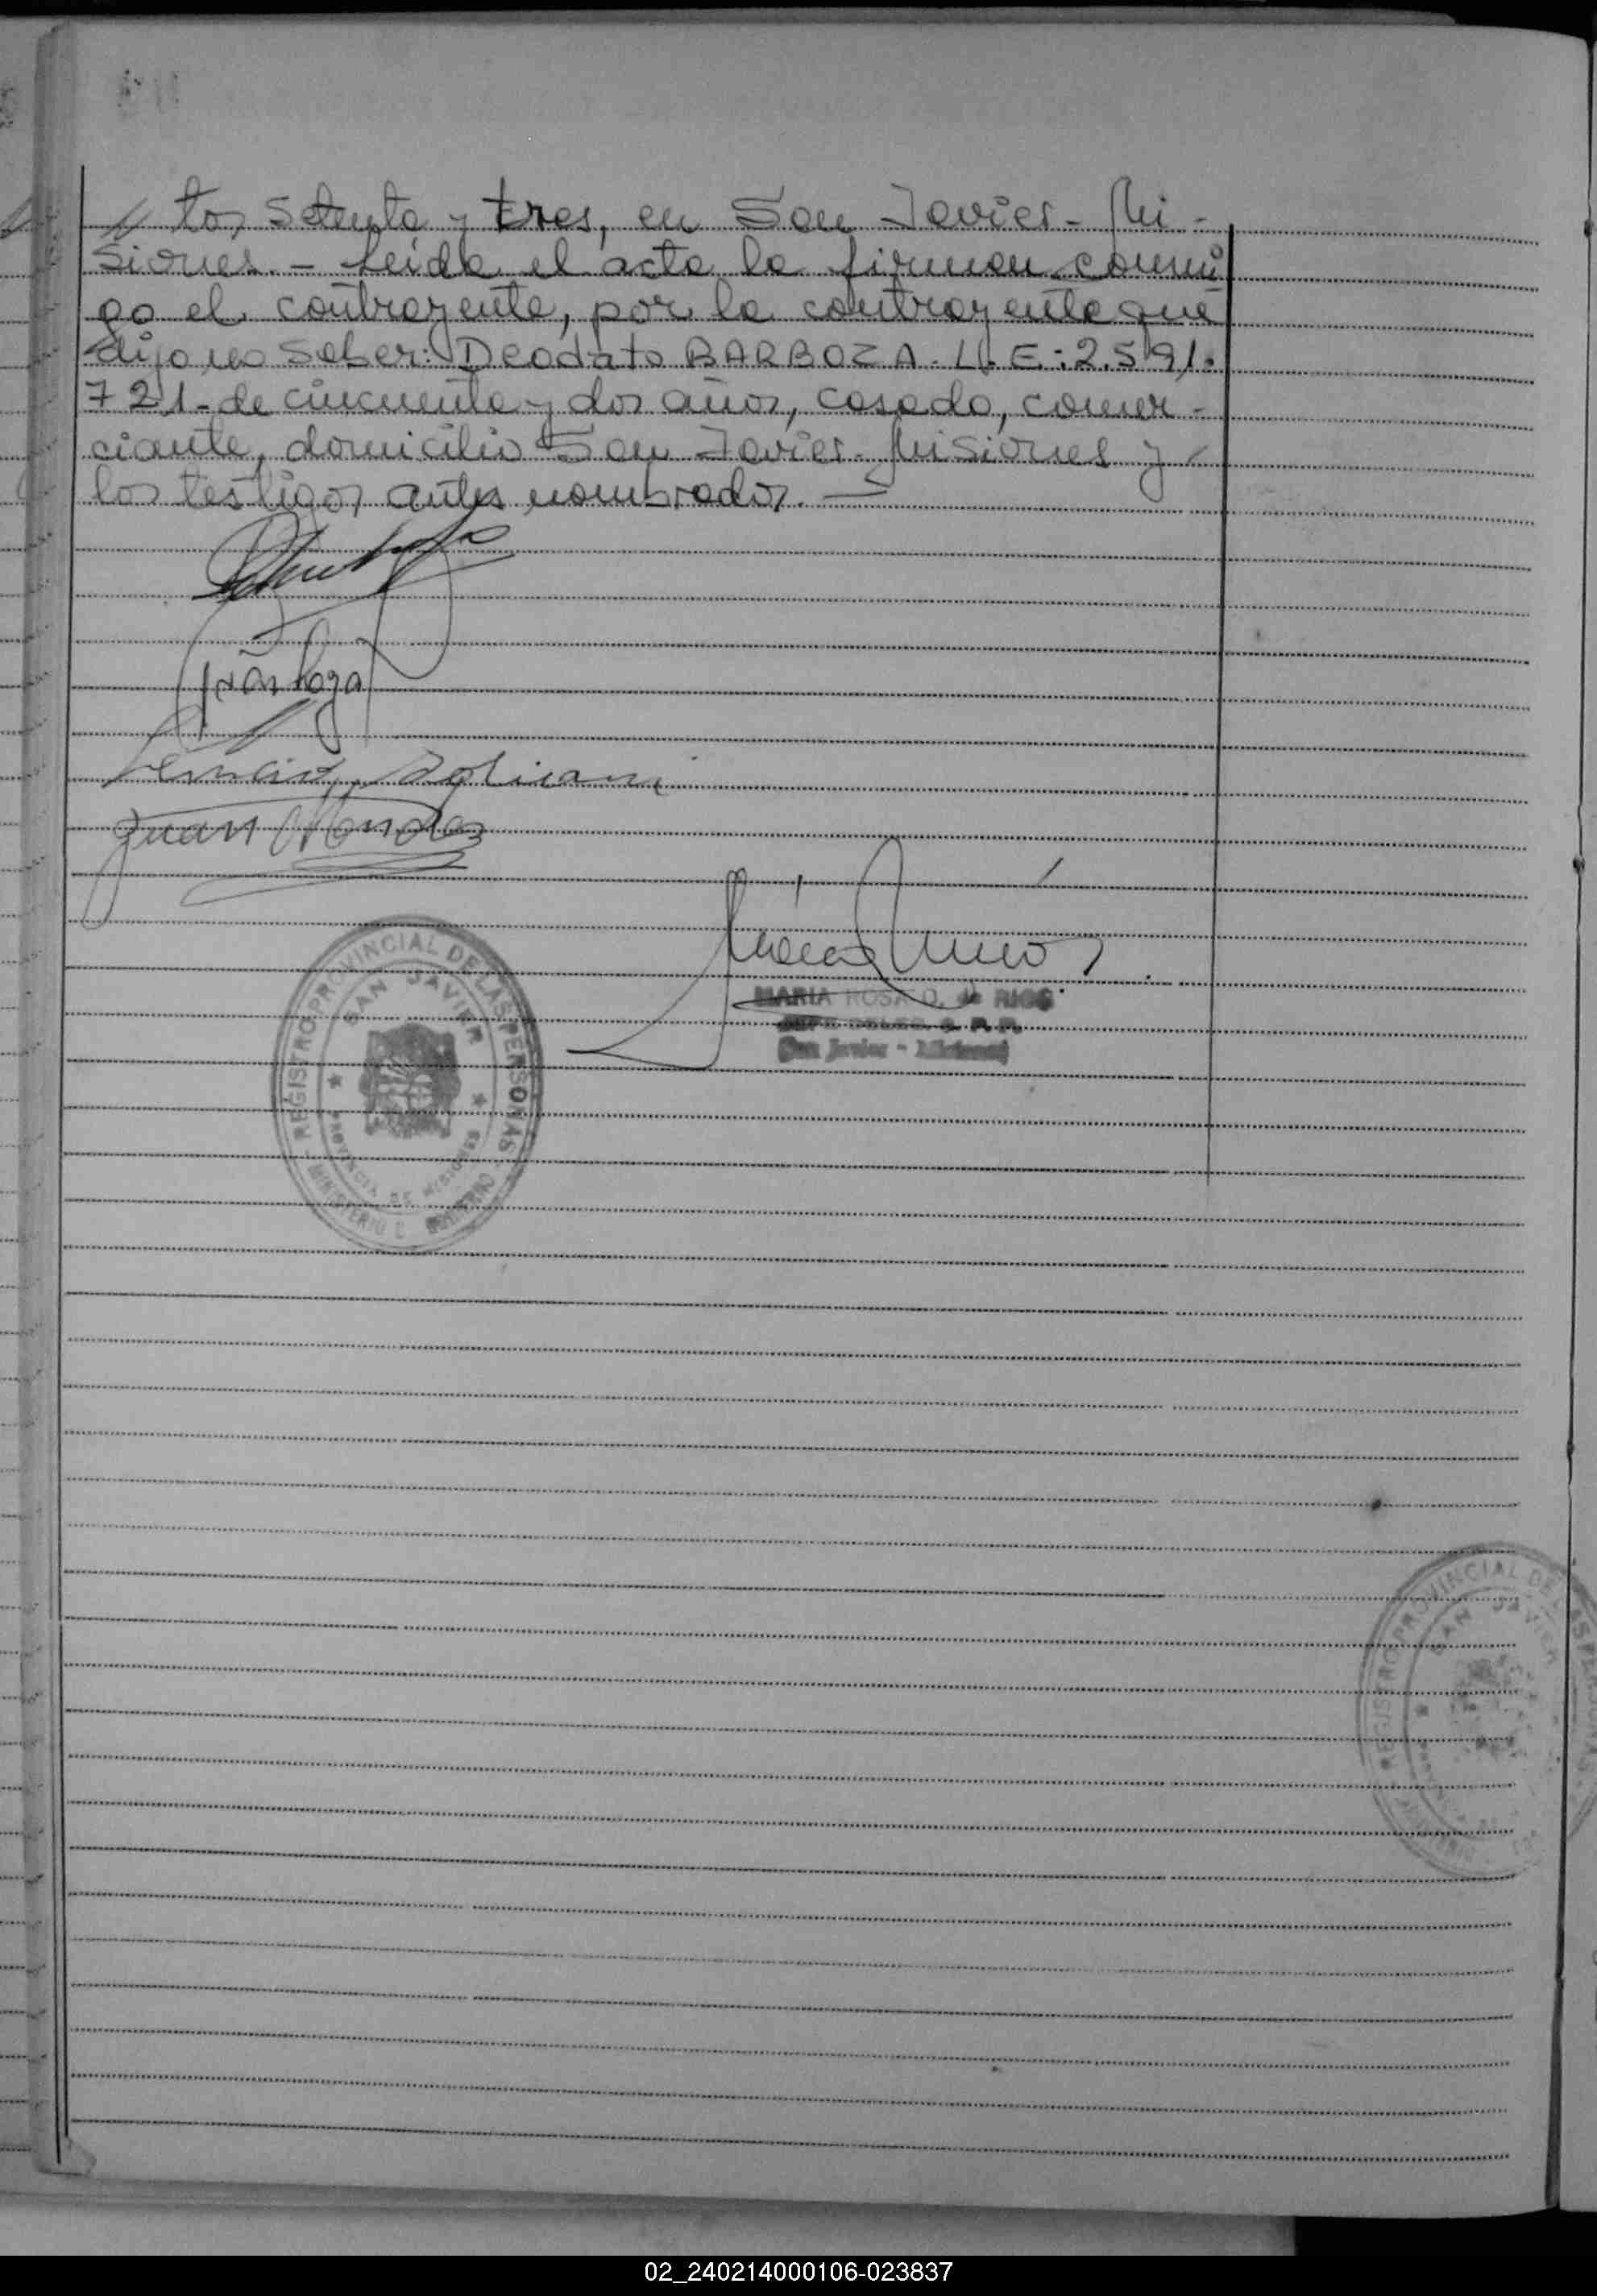 // tos setenta y tres, en San Javier - Mi-
siones. - Leida el acta la firman conmi
go el contrayente, por la contrayente que
dijo no saber: Deodato BARBOZA. L. E: 2.591.
721 - de cincuenta y dos años, casado, comer-
ciante, domicilio San Javier - Misiones y
los testigos antes nombrados. —
Juan Mendez
REGISTRO PROVINCIAL DE LAS PERSONAS
SAN JAVIER
PROVINCIA DE MISIONES
MINISTERIO DE GOBIERNO
MARIA ROSA D. de RIOS
(San Javier - Misiones)
REGISTRO PROVINCIAL DE LAS PERSONAS
SAN JAVIER
02_240214000106-023837